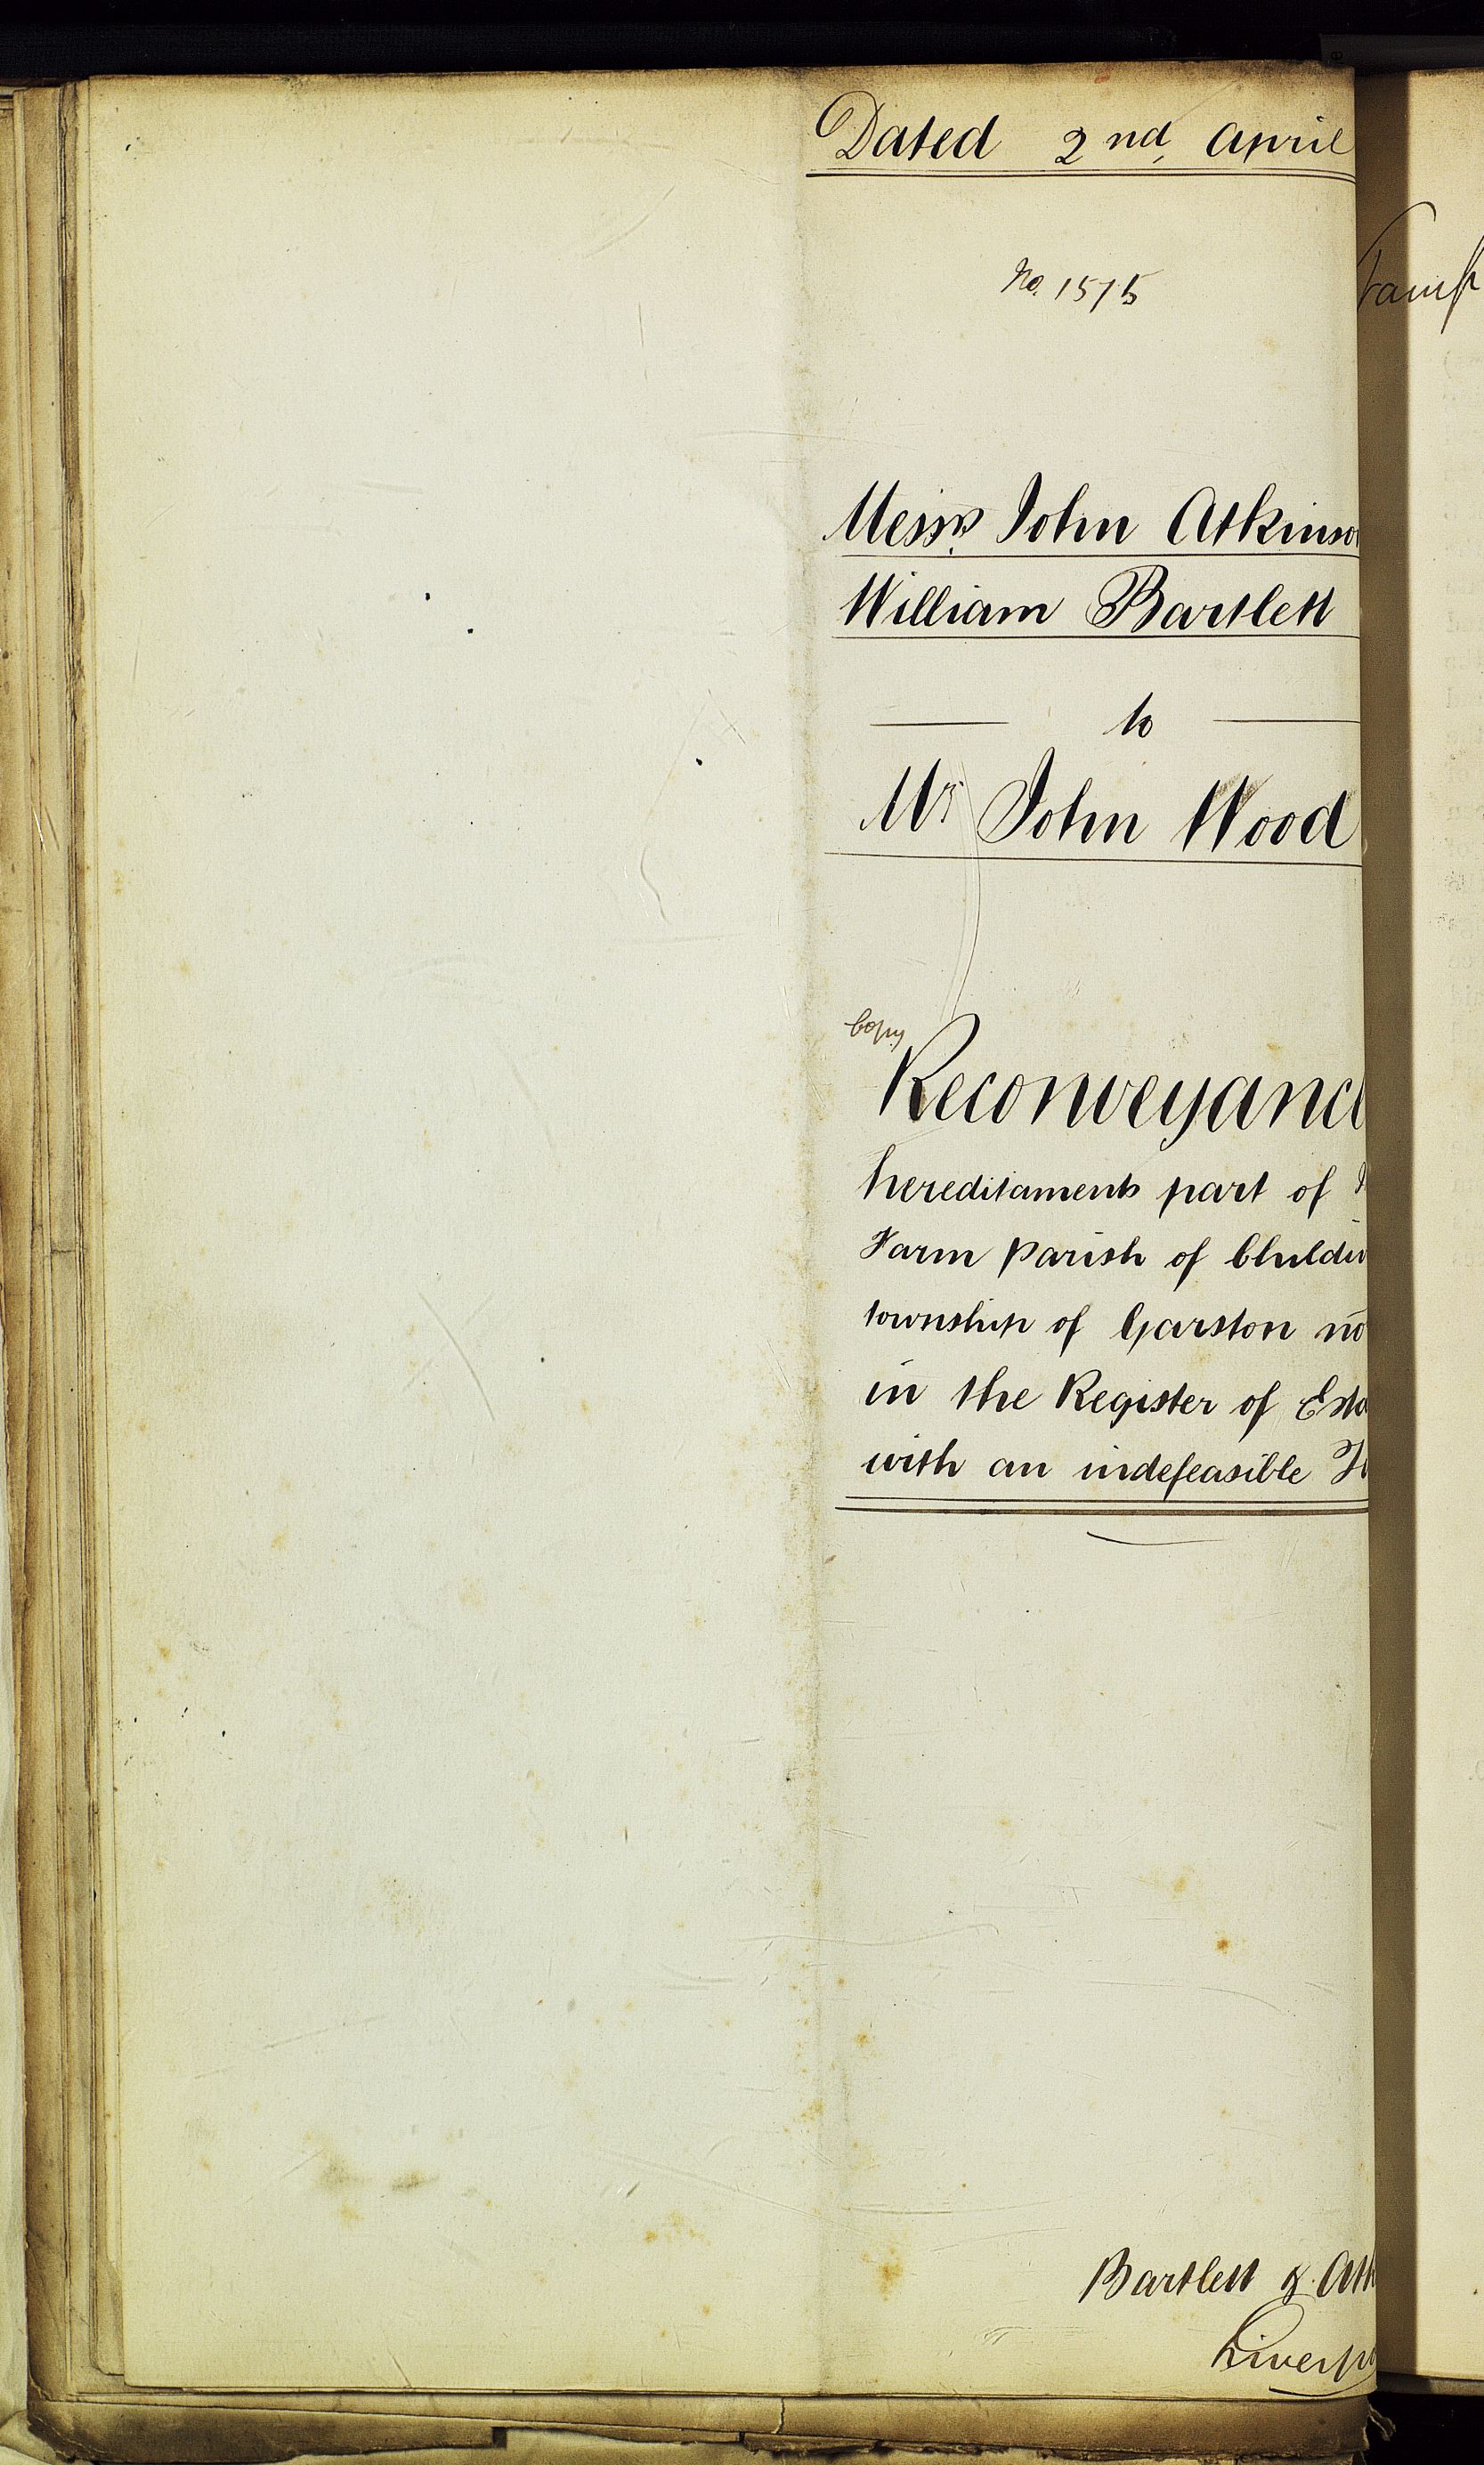 Dated 2nd April
No. 1515
Messrs John Atkinso
William Bartlett
to
Mr John Wood
Copy
Reconveyanc
hereditaments part of
Farm parish of Childw
township of Garston no
in the Register of Esta
with an indefeasible Ti
Bartlett & Atk
Liverpo